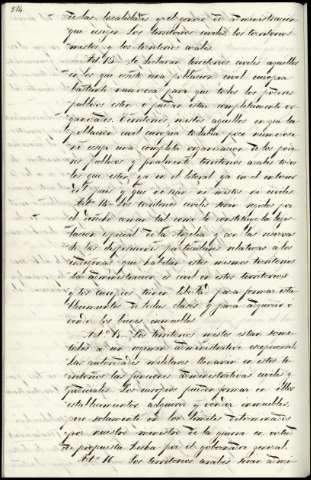 214
de las localidades y el genero de administracion
que exigen los territorios civiles los territorios
mistos y los territorios arabes.
Art. 13. Se declaran territorios civiles aquellos
en los que existe una poblacion civil europea
bastante numerosa para que todos los servicios
publicos esten o puedan estar completamente or-
ganizados. Territorios mistos aquellos en que la
poblacion civil europea todavia poco numerosa
no exige una completa organizacion de los servi-
cios publicos y finalmente territorios arabes todos
los que estan ya en el litoral ya en el interior
del pais y que no son ni mistos ni civiles
Art. 14. Los territorios civiles seran regidos por
el derecho comun tal como lo constituye la legis-
lacion especial de la Argelia y con las reservas
de las disposiciones particulares relativas a los
indigenas que habitan estos mismos territorios
La administracion es civil en estos territorios
y los europeos tienen libertad para formar esta-
blecimientos de todas clases y para adquirir o
vender los bienes inmuebles.
Art. 15. Los territorios mistos estan some-
tidos a un regimen administrativo escepcional
Las autoridades militares llenaran en estos te-
rritorios las funciones administrativas civiles y
judiciales. Los europeos pueden formar en ellos
establecimientos adquirir y vender inmuebles,
pero solamente en los limites determinados
por nuestro ministro de la guerra en vista
de propuesta hecha por el gobernador general.
Art. 16. Los territorios arabes seran admi-